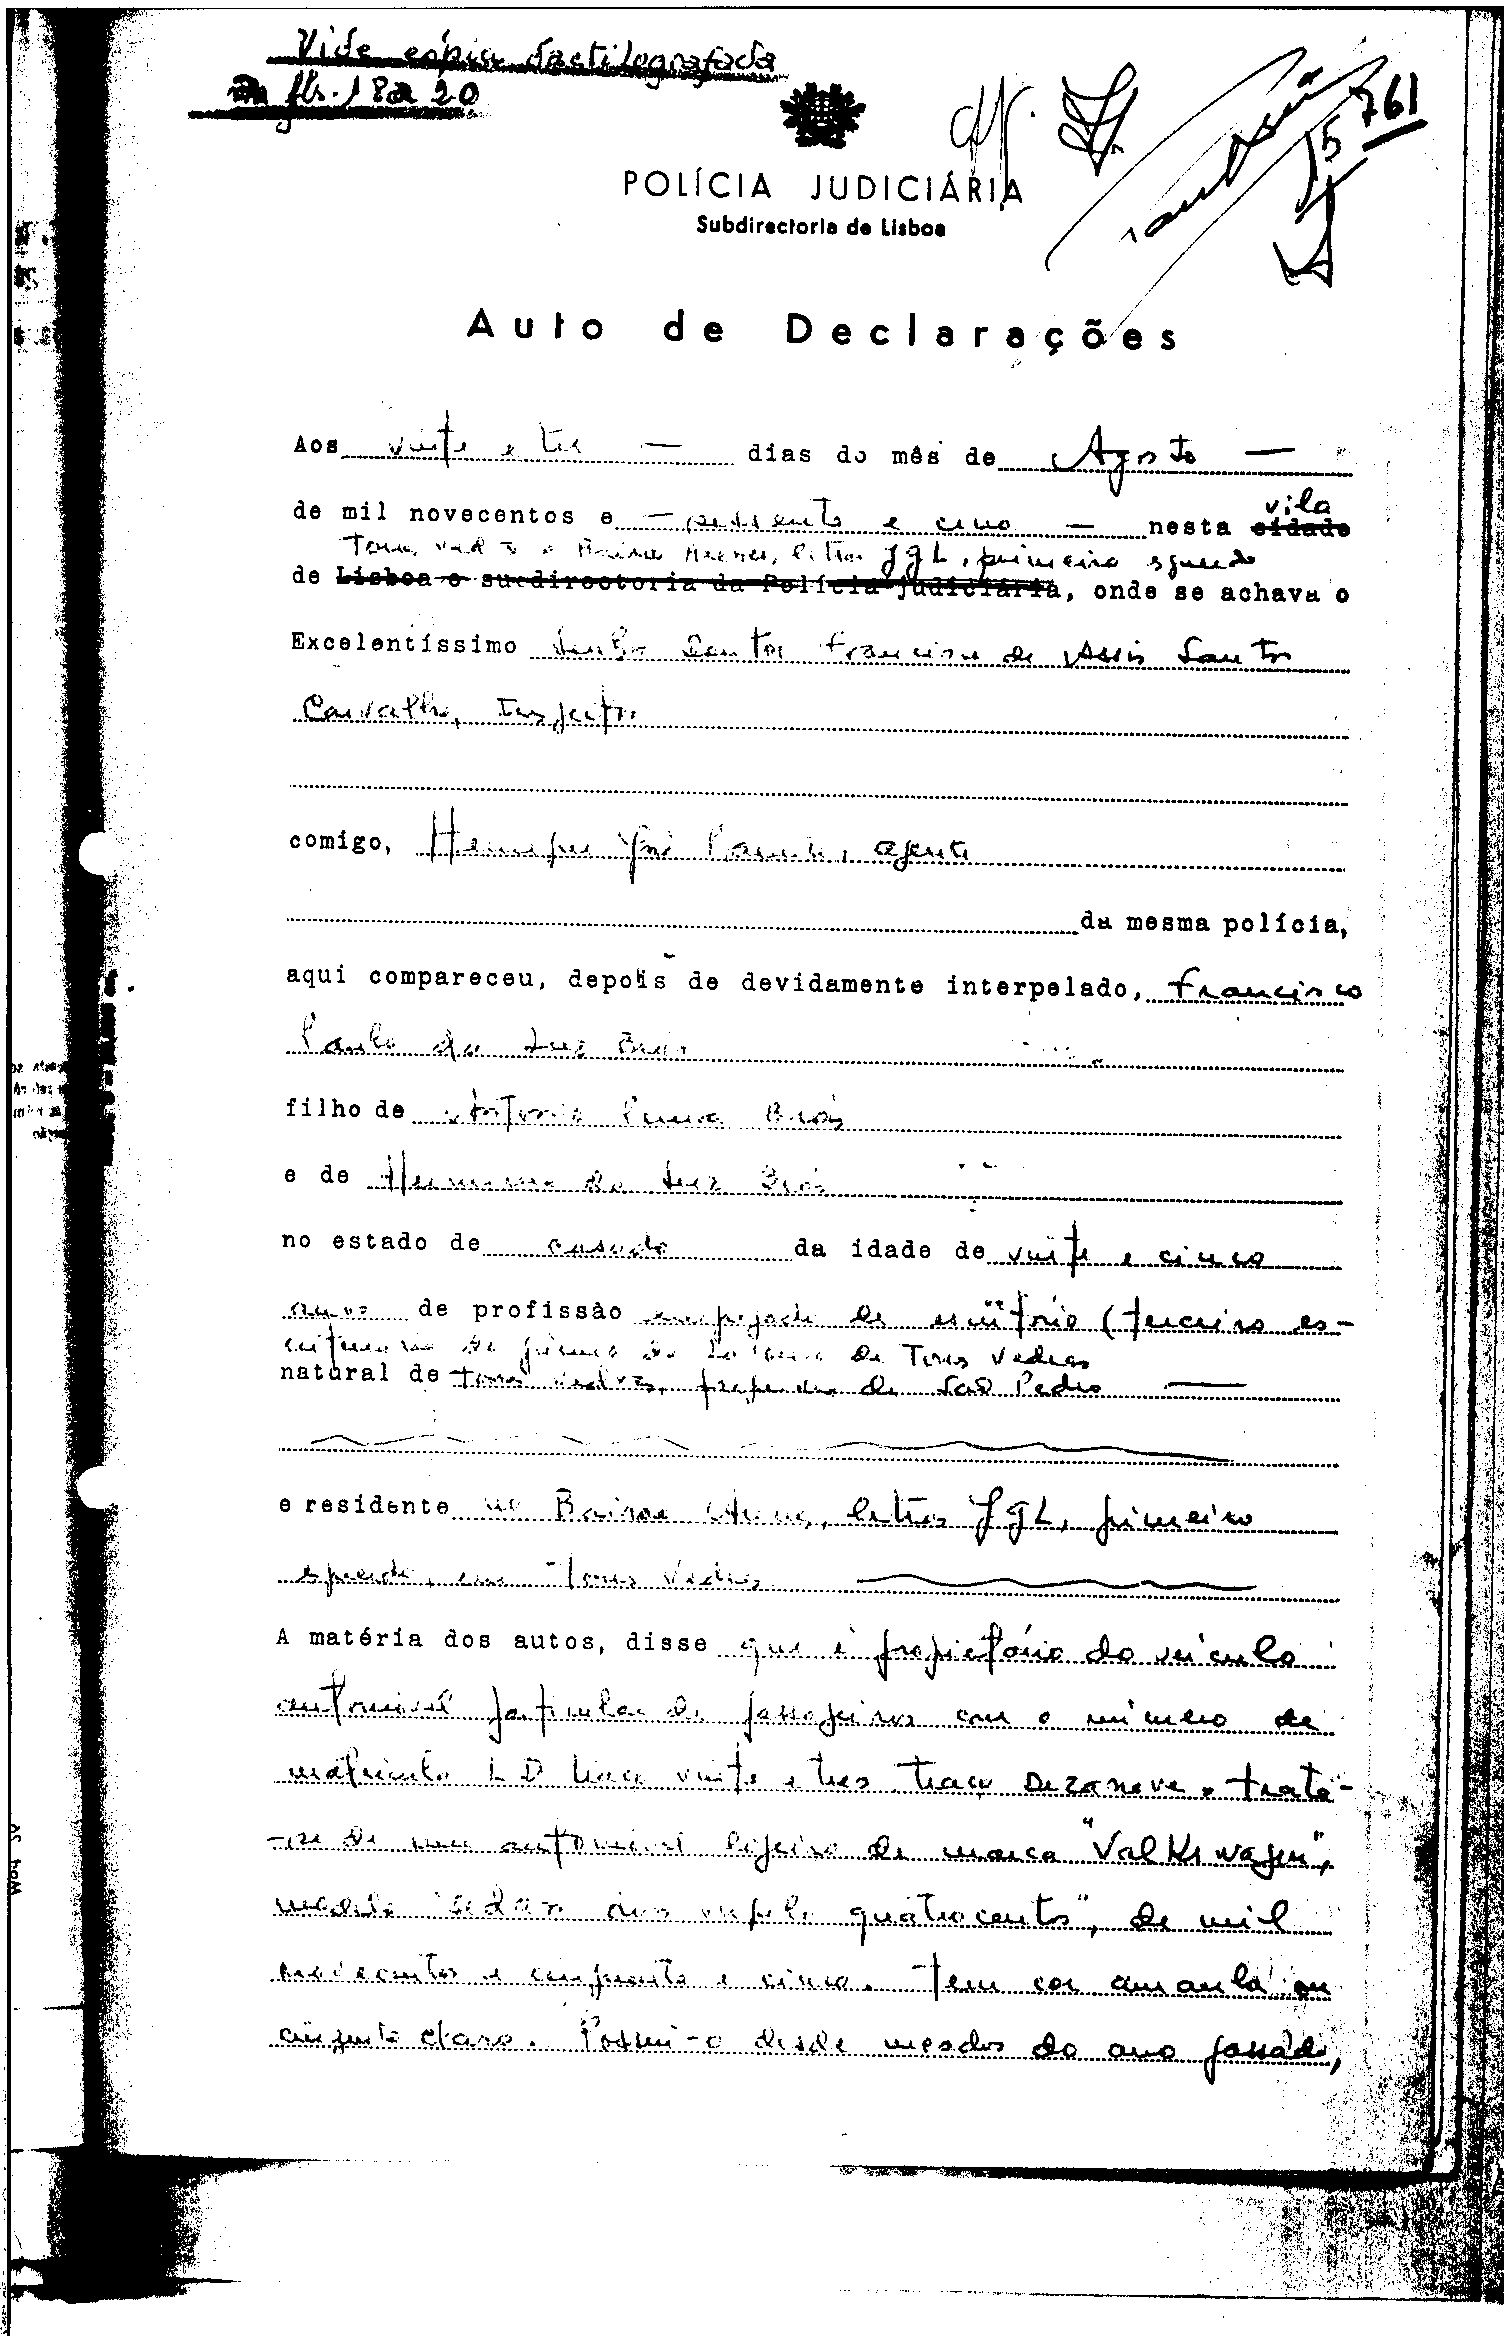 Vide cópia dactilografada
fls. 18 a 20
761
POLÍCIA JUDICIÁRIA
Subdirectoria de Lisboa
Auto de Declarações
Aos vinte e tres — dias do mês de Agosto —
de mil novecentos e — sessenta e cinco — nesta cidade vila
Torres Vedras e Bairro Arenes, letras JGL, primeiro esquerdo
de Lisboa e subdirectoria da Polícia Judiciária, onde se achava o
Excelentíssimo Senhor Doutor Francisco de Assis Santos
Carvalho, Inspector
comigo, Henrique José Carrilho, agente
da mesma polícia,
aqui compareceu, depois de devidamente interpelado, Francisco
Paulo da Luz Brás
filho de António Brás
e de da Luz Brás
no estado de casado da idade de vinte e cinco
anos de profissão empregado de escritório (terceiro es-
criturário de de Torres Vedras
natural de Torres Vedras, freguesia de São Pedro —
e residente no Bairro Arenes, letras JGL, primeiro
esquerdo, em Torres Vedras
A matéria dos autos, disse que é proprietário do veículo
automóvel particular de passageiros com o número de
matrícula LD traço vinte e tres traço dezanove. Trata-
-se de um automóvel ligeiro de marca "Valkswagen",
modelo "sedan quatrocentos", de mil
novecentos e cinquenta e cinco. Tem cor amarela ou
cinzento claro. Possui-o desde meados do ano passado,